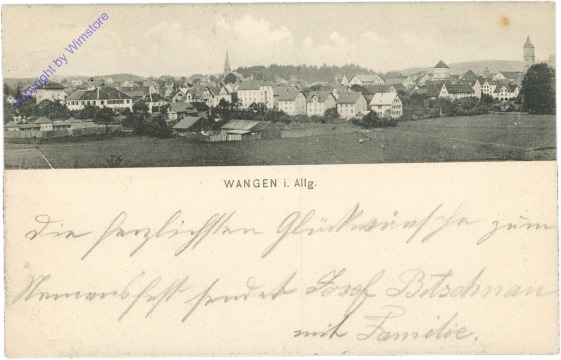 Copyright by Wimstore
WANGEN i. Allg.
Die herzlichsten Glückwünsche zum
Namensfest sendet Josef Bitschnau
mit Familie.